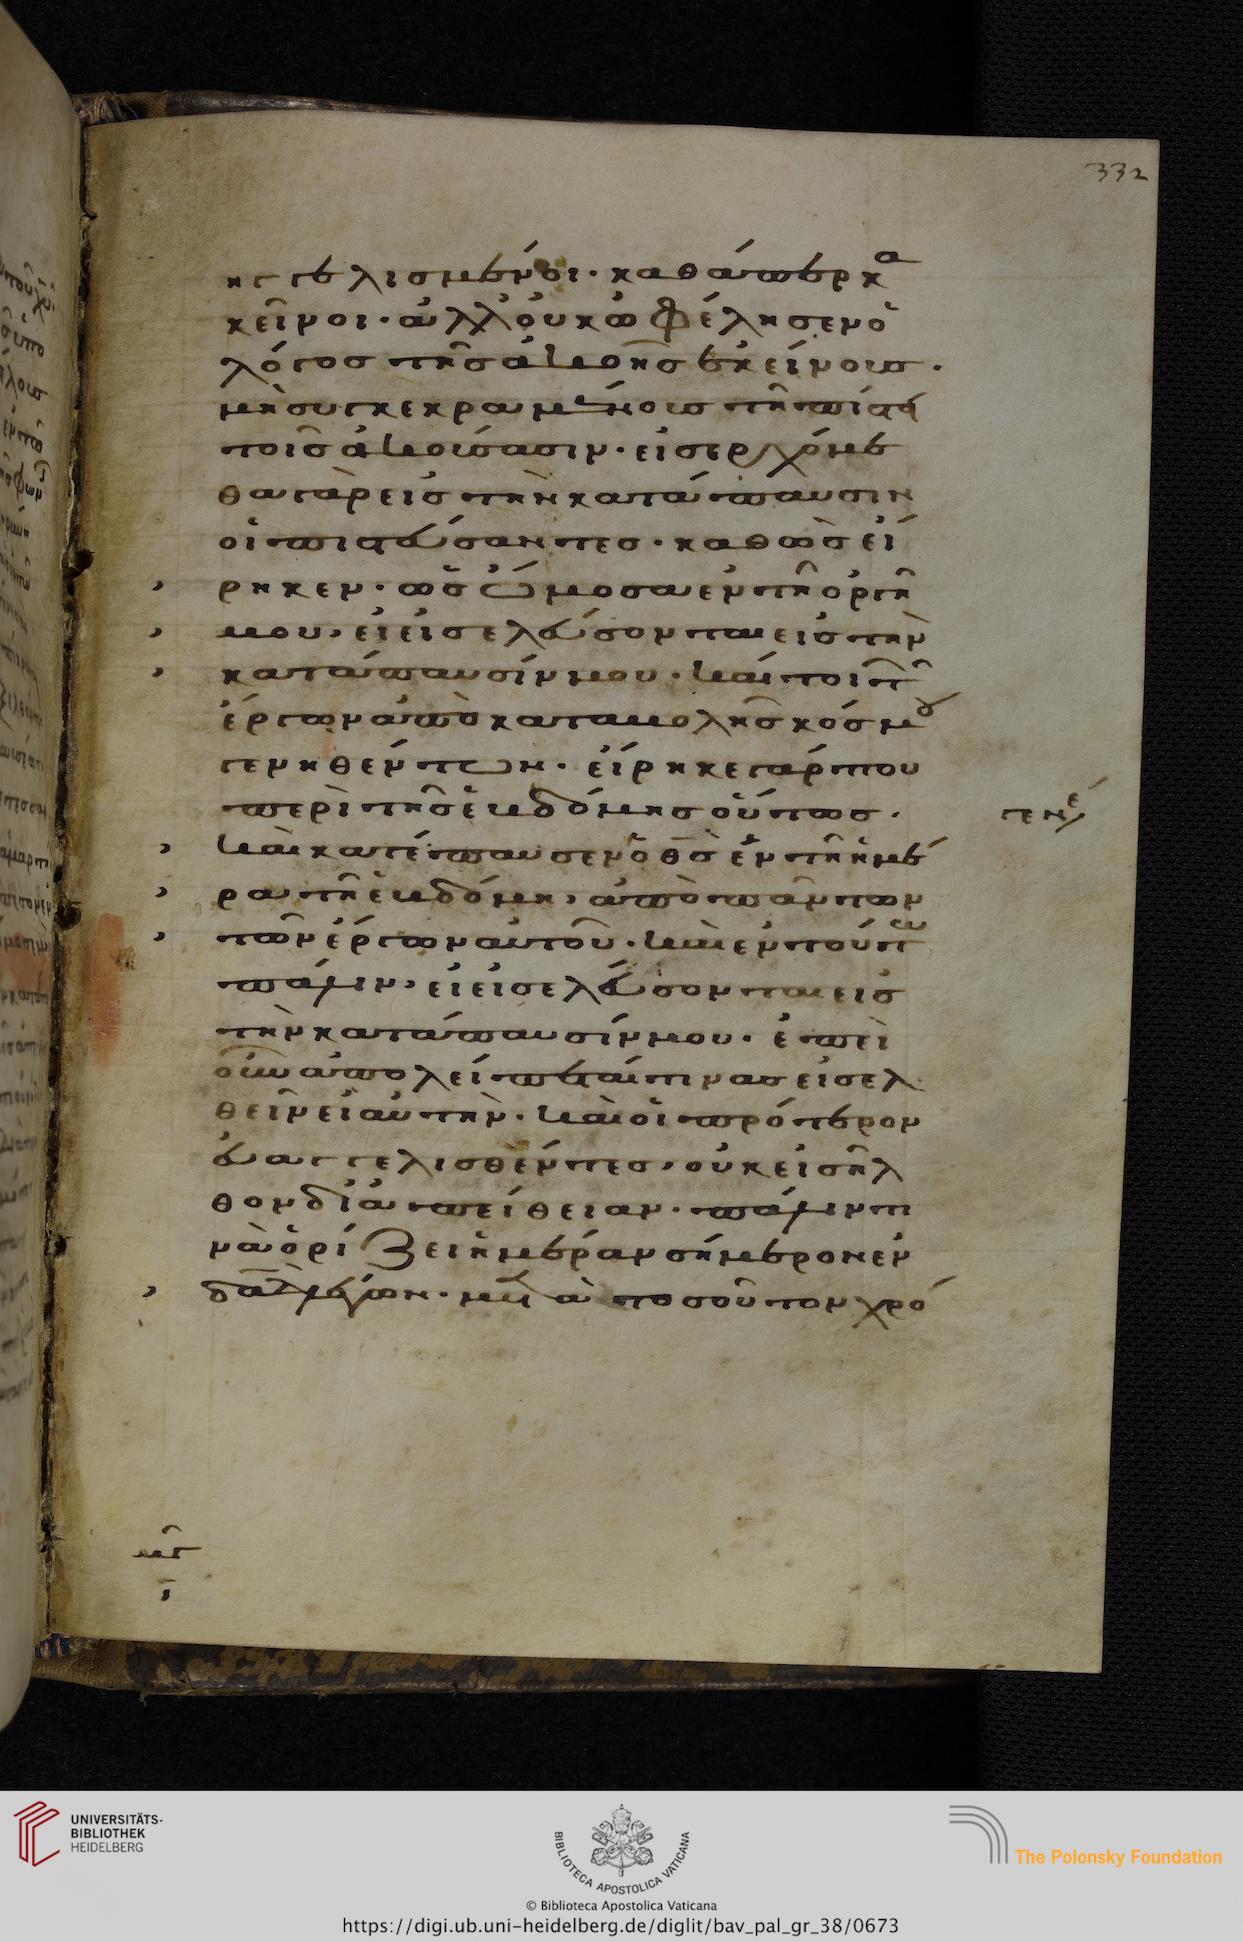 332
ηγγελισμένοι· καθάπερ κα
κεῖνοι· ἀλλ' οὐκ ὠφέλησεν ὁ
λόγος τῆς ἀκοῆς ἐκείνοις·
μὴ συγκεκραμένοις τῆ πίστει
τοῖς ἀκούσασιν· εἰσερχόμε
θα γὰρ εἰς τὴν κατάπαυσιν
οἱ πιστεύσαντες· καθὼς εἴ
ρηκεν· ὡς ὤμοσα ἐν τῆ ὀργῆ
μου, εἰ εἰσελεύσονται εἰς τὴν
κατάπαυσίν μου· καί τοι τῶν
ἔργων ἀπὸ καταβολῆς κόσμου
γενηθέντων· εἴρηκε γάρ που
περὶ τῆς ἑβδόμης οὕτως·
γενέ
καὶ κατέπαυσεν ὁ θς ἐν τῆ ἡμέ
ρα τῆ ἑβδόμη, ἀπὸ πάντων
τῶν ἔργων αὐτοῦ· καὶ ἐν τούτω
πάλιν, εἰ εἰσελεύσονται εἰς
τὴν κατάπαυσίν μου· ἐπεὶ
οὖν ἀπολείπεται τινας εἰσελ
θεῖν εἰς αὐτήν· καὶ οἱ πρότερον
εὐαγγελισθέντες, οὐκ εἰσῆλ
θον δι' ἀπείθειαν· πάλιν τι
νὰ ὁρίζει ἡμέραν σήμερον ἐν
δαδ λέγων· μετὰ τοσοῦτον χρό
UNIVERSITÄTS-
BIBLIOTHEK
HEIDELBERG
BIBLIOTECA APOSTOLICA VATICANA
The Polonsky Foundation
© Biblioteca Apostolica Vaticana
https://digi.ub.uni-heidelberg.de/diglit/bav_pal_gr_38/0673